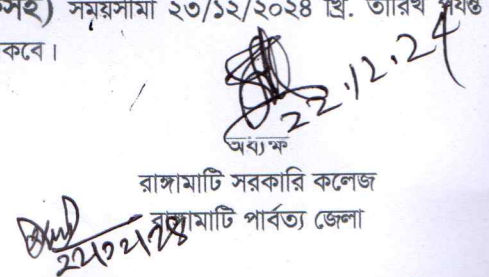 সময়সীমা ২৩/১২/২০২৪ খ্রি. তারিখ পর্যন্ত
22.12.24
অধ্যক্ষ
রাঙ্গামাটি সরকারি কলেজ
রাঙ্গামাটি পার্বত্য জেলা